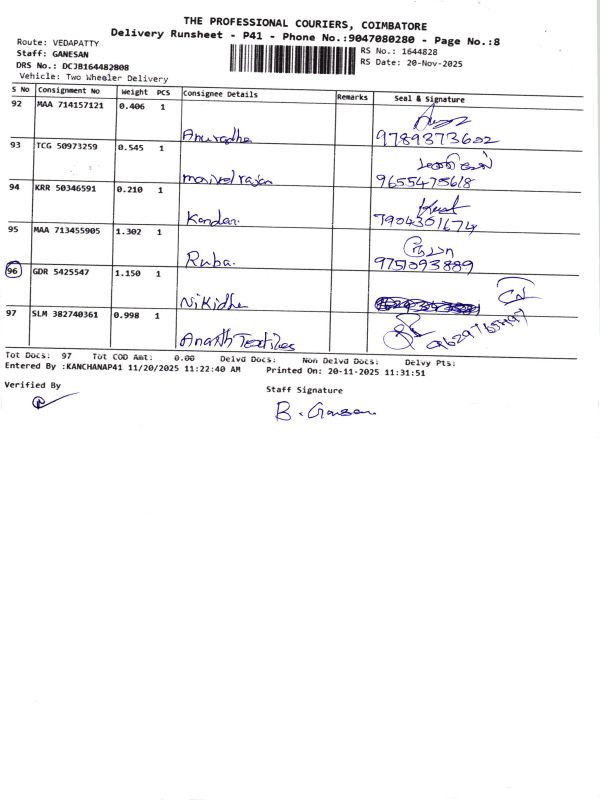 THE PROFESSIONAL COURIERS, COIMBATORE
Delivery Runsheet - P41 - Phone No.:9047080280 - Page No.:8
Route: VEDAPATTY
Staff: GANESAN
RS No.: 1644828
DRS No.: DCJB164482808
RS Date: 20-Nov-2025
Vehicle: Two Wheeler Delivery
S No Consignment No Weight PCS Consignee Details Remarks Seal & Signature
92 MAA 714157121 0.406 1
Anuradha 9789373602
93 TCG 50973259 0.545 1
9655475618
94 KRR 50346591 0.210 1
Kandan. 7904301674
95 MAA 713455905 1.302 1
Ruba. 9751093889
96 GDR 5425547 1.150 1
Nikidha
97 SLM 382740361 0.998 1
Ananth Textiles
Tot Docs: 97 Tot COD Amt: 0.00 Delvd Docs: Non Delvd Docs: Delvy Pts:
Entered By :KANCHANAP41 11/20/2025 11:22:40 AM Printed On: 20-11-2025 11:31:51
Verified By
Staff Signature